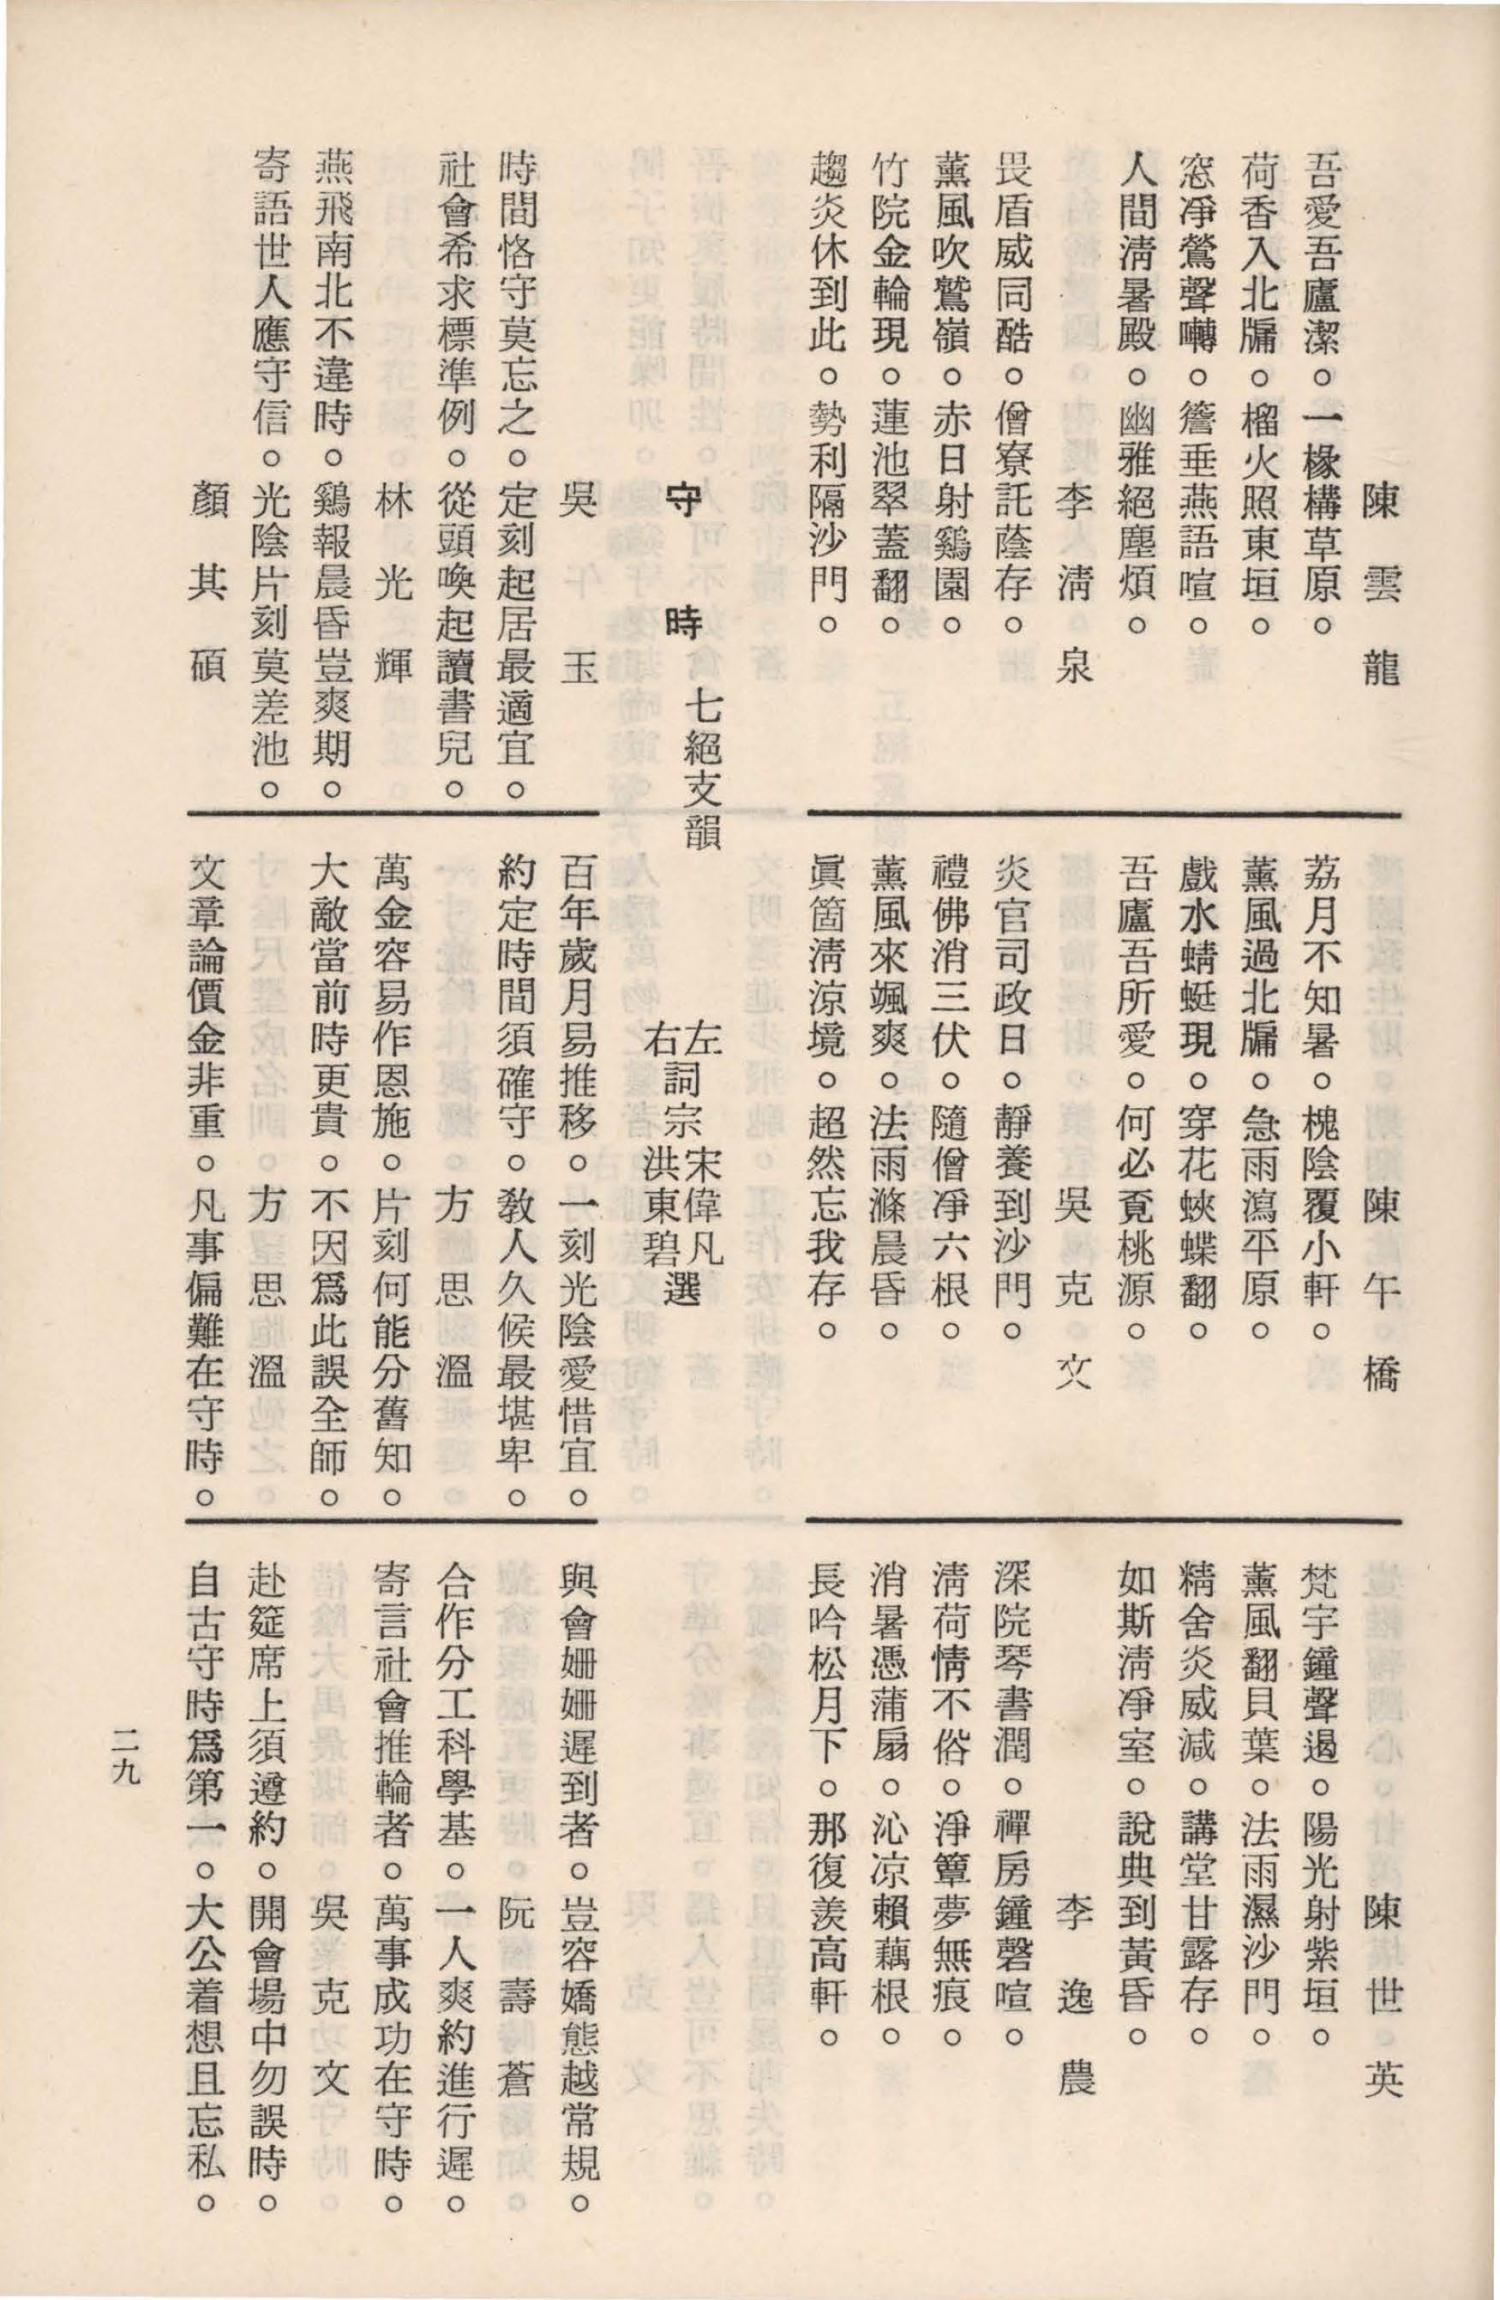 陳雲龍
吾愛吾廬潔。一椽構草原。
荷香入北牖。榴火照東垣。
窓凈鶯聲囀。簷垂燕語喧。
人間淸暑殿。幽雅絕塵煩。
李淸泉
畏盾威同酷。僧寮託蔭存。
薰風吹鷲嶺。赤日射鷄園。
竹院金輪現。蓮池翠蓋翻。
趨炎休到此。勢利隔沙門。
陳午橋
荔月不知暑。槐陰覆小軒。
薰風過北牖。急雨瀉平原。
戲水蜻蜓現。穿花蛺蝶翻。
吾廬吾所愛。何必覓桃源。
吳克文
炎官司政日。靜養到沙門。
禮佛消三伏。隨僧凈六根。
薰風來颯爽。法雨滌晨昏。
眞箇淸涼境。超然忘我存。
陳世英
梵宇鐘聲遏。陽光射紫垣。
薰風翻貝葉。法雨濕沙門。
精舍炎威減。講堂甘露存。
如斯淸凈室。說典到黃昏。
李逸農
深院琴書潤。禪房鐘磬喧。
淸荷情不俗。淨簟夢無痕。
消暑憑蒲扇。沁凉賴藕根。
長吟松月下。那復羨高軒。
守時 七絕支韻
左右詞宗 宋偉凡 洪東碧 選
吳午玉
時間恪守莫忘之。定刻起居最適宜。
社會希求標準例。從頭喚起讀書兒。
林光輝
燕飛南北不違時。鷄報晨昏豈爽期。
寄語世人應守信。光陰片刻莫差池。
顏其碩
百年歲月易推移。一刻光陰愛惜宜。
約定時間須確守。敎人久候最堪卑。
方思溫
萬金容易作恩施。片刻何能分舊知。
大敵當前時更貴。不因爲此誤全師。
方思溫
文章論價金非重。凡事偏難在守時。
與會姍姍遲到者。豈容嬌態越常規。
阮壽蒼
合作分工科學基。一人爽約進行遲。
寄言社會推輪者。萬事成功在守時。
吳克文
赴筵席上須遵約。開會場中勿誤時。
自古守時爲第一。大公着想且忘私。
二九